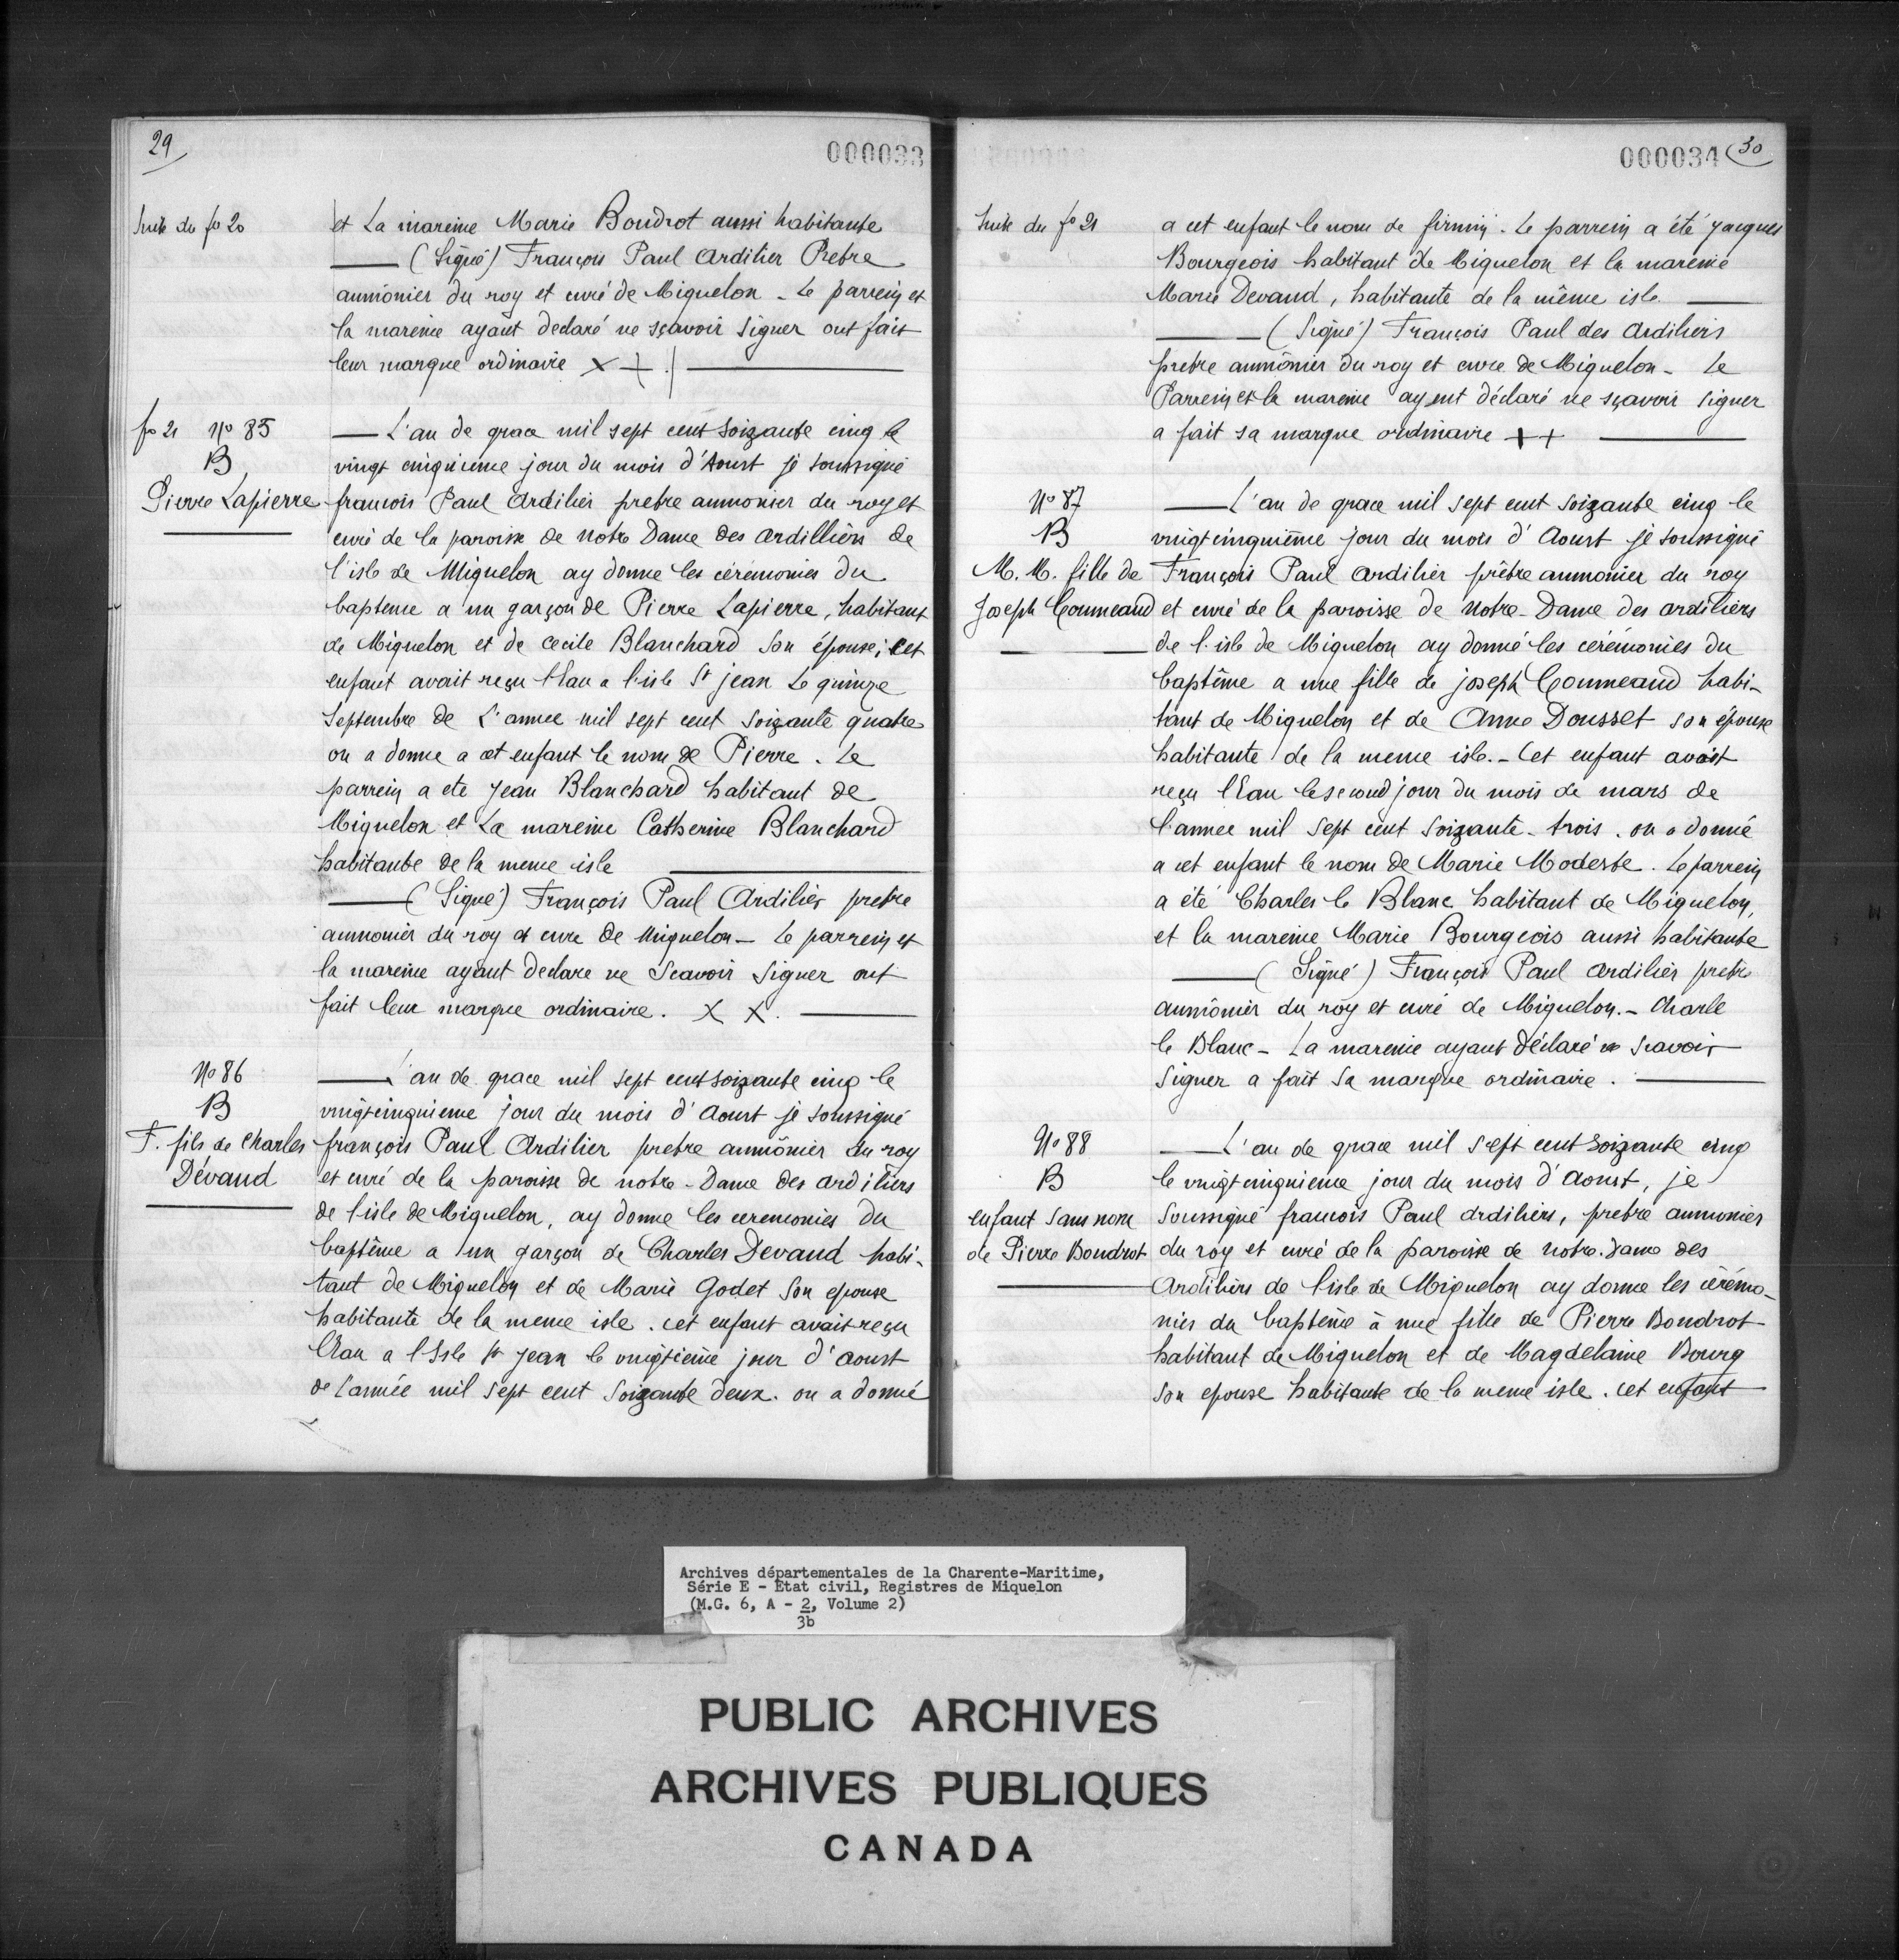 29
000033
Suite du fo 20
et La mareine Marie Boudrot aussi habitante
(Signé) François Paul Ardilier Prebre
aumônier du roy et curé de Miquelon - Le parrein et
la mareine ayant declaré ne sçavoir signer ont fait
leur marque ordinaire X +
fo 21 No 85
B
Pierre Lapierre
L'an de grace mil sept cent soizante cinq le
vingt cinquieme jour du mois d'Aoust je soussigné
francois Paul Ardilier prebre aumonier du roy et
curé de la paroisse de Notre Dame des Ardilliers de
l'isle de Miquelon ay donne les cérémonies du
bapteme a un garçon de Pierre Lapierre, habitant
de Miquelon et de Cecile Blanchard son épouse; cet
enfant avait reçu l'Eau a l'isle St jean Le quinze
Septembre de L'annee mil sept cent soizante quatre
on a donne a cet enfant le nom de Pierre. Le
parrein a ete Jean Blanchard habitant de
Miquelon et La mareine Catherine Blanchard
habitante de la meme isle
(Signé) François Paul Ardilier prebre
aumonier du roy et cure de Miquelon - Le parrein et
la mareine ayant declare ne scavoir signer ont
fait leur marque ordinaire. X X.
No 86
B
F. fils de Charles
Dévaud
L'an de grace mil sept cent soizante cinq le
vingtcinquieme jour du mois d'Aoust je soussigné
françois Paul Ardilier prebre aumônier du roy
et curé de la paroisse de notre-Dame des ardiliers
de l'isle de Miquelon, ay donne les ceremonies du
baptême a un garçon de Charles Devaud habi-
tant de Miquelon et de Marie Godet Son epouse
habitante de la meme isle. cet enfant avait reçu
l'Eau a l'Isle St Jean le vingtieme jour d'aoust
de l'année mil sept cent soizante deux. on a donné
000034 30
Suite du fo 21
a cet enfant le nom de firmin. Le parrein a été jacques
Bourgeois habitant de Miquelon et la mareine
Marie Devaud, habitante de la même isle
(Signé) François Paul des Ardiliers
prebre aumônier du roy et cure de Miquelon - Le
Parrein et la mareine ayent déclaré ne sçavoir signer
a fait sa marque ordinaire + +
No 87
B
M. M. fille de
Joseph Commeaud
L'an de grace mil sept cent soizante cinq le
vingtcinquième jour du mois d'Aoust je soussigné
François Paul Ardilier prêbre aumonier du roy
et curé de la paroisse de Notre-Dame des ardiliers
de l'isle de Miquelon ay donné les cérémonies du
baptême a une fille de joseph Commeaud habi-
tant de Miquelon et de Anne Dousset son épouse
habitante de la meme isle. - Cet enfant avoit
reçu l'Eau le second jour du mois de mars de
l'annee mil sept cent soizante-trois. on a donné
a cet enfant le nom de Marie Modeste. Le parrein
a été Charles le Blanc habitant de Miquelon,
et la mareine Marie Bourgeois aussi habitante
(Signé) François Paul Ardilier prebre
aumônier du roy et curé de Miquelon. - Charle
le Blanc - La mareine ayant déclaré ne scavoir
signer a fait sa marque ordinaire.
No 88
B
enfant sans nom
de Pierre Boudrot
L'an de grace mil sept cent soizante cinq
le vingtcinquieme jour du mois d'Aoust, je
soussigné francois Paul ardiliers, prebre aumonier
du roy et curé de la paroisse de notre-dame des
Ardiliers de l'isle de Miquelon ay donne les cérémo-
nies du baptême à une fille de Pierre Boudrot
habitant de Miquelon et de Magdelaine Bourg
son epouse habitante de la meme isle. cet enfant
Archives départementales de la Charente-Maritime,
Série E - Etat civil, Registres de Miquelon
(M.G. 6, A - 2, Volume 2)
3b
PUBLIC ARCHIVES
ARCHIVES PUBLIQUES
CANADA